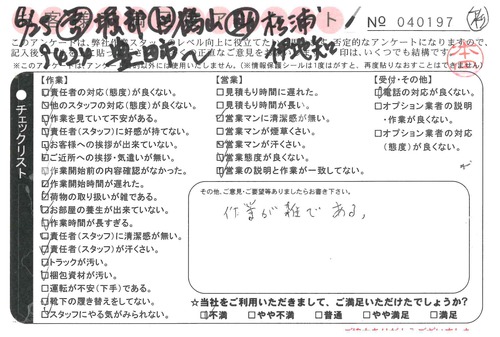 No 040197
このアンケートは、弊社
※このアンケートは、
【作業】
責任者の対応(態度)が良くない。
他のスタッフの対応(態度)が良くない。
作業を見ていて不安がある。
責任者(スタッフ)に好感が持てない。
お客様への挨拶が出来ていない。
ご近所への挨拶・気遣いが無い。
作業開始前の内容確認がなかった。
作業開始時間が遅れた。
荷物の取り扱いが雑である。
お部屋の養生が出来ていない。
作業時間が長すぎる。
責任者(スタッフ)に清潔感が無い。
責任者(スタッフ)が汗くさい。
トラックが汚い。
梱包資材が汚い。
運転が不安(下手)である。
靴下の履き替えをしてない。
スタッフにやる気がみられない。
チェックリスト
【営業】
見積もり時間に遅れた。
見積もり時間が長い。
営業マンに清潔感が無い。
営業マンが煙草くさい。
営業マンが汗くさい。
営業態度が良くない。
営業の説明と作業が一致してない。
【受付・その他】
電話の対応が良くない。
オプション業者の説明
・作業が良くない。
オプション業者の対応
(態度)が良くない。
その他、ご意見・ご要望等ありましたらお書き下さい。
作業が雑である。
☆当社をご利用いただきまして、ご満足いただけたでしょうか?
不満 やや不満 普通 やや満足 満足